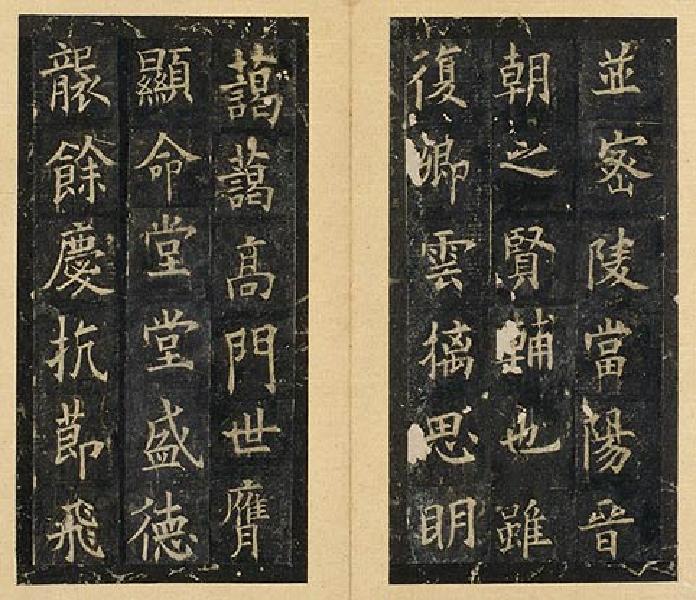 並密陵當陽晉
朝之賢輔也雖
復卿雲摛思朙
藹藹高門世膺
顯命堂堂盛徳
襲餘慶抗莭飛